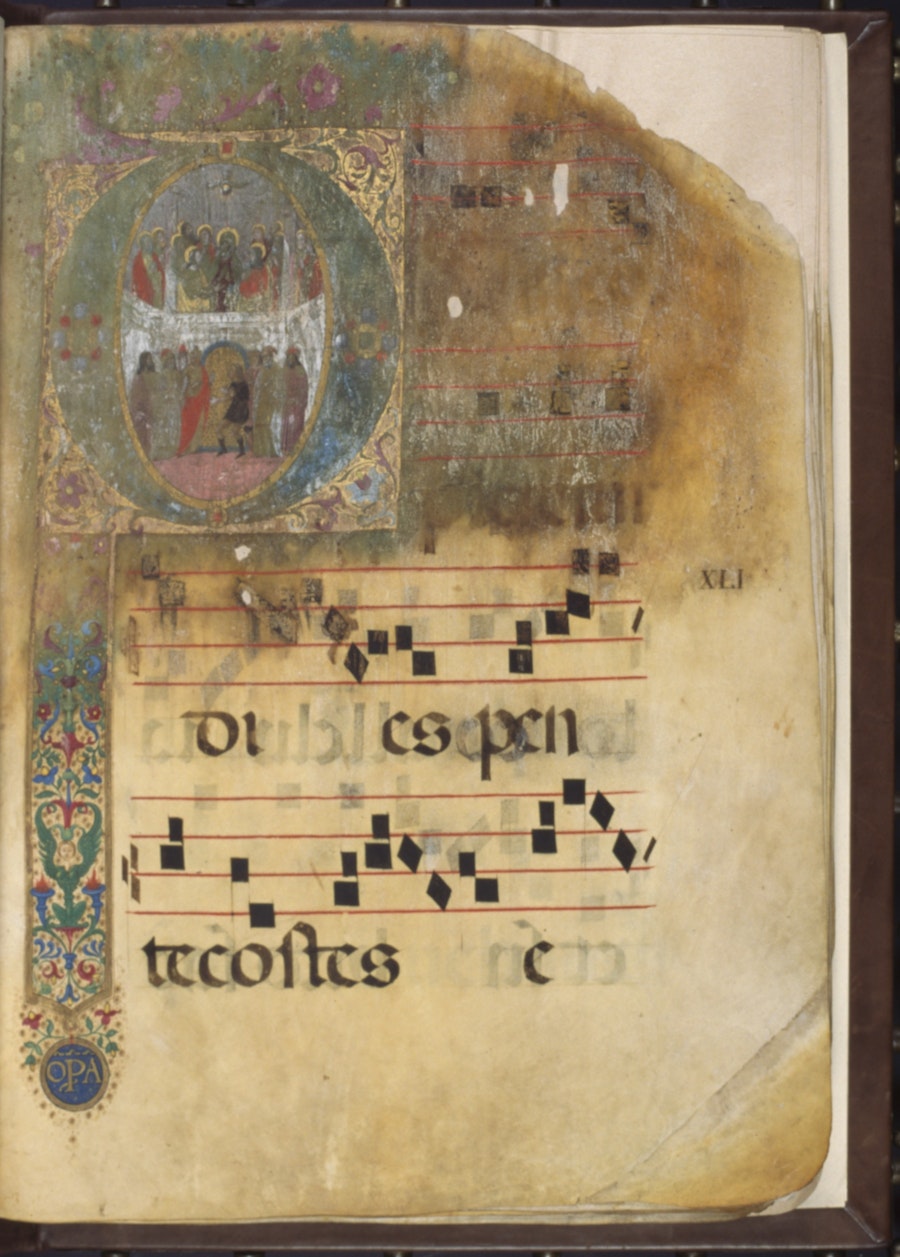 XLI
di es pen
tecoſtes e
OPA